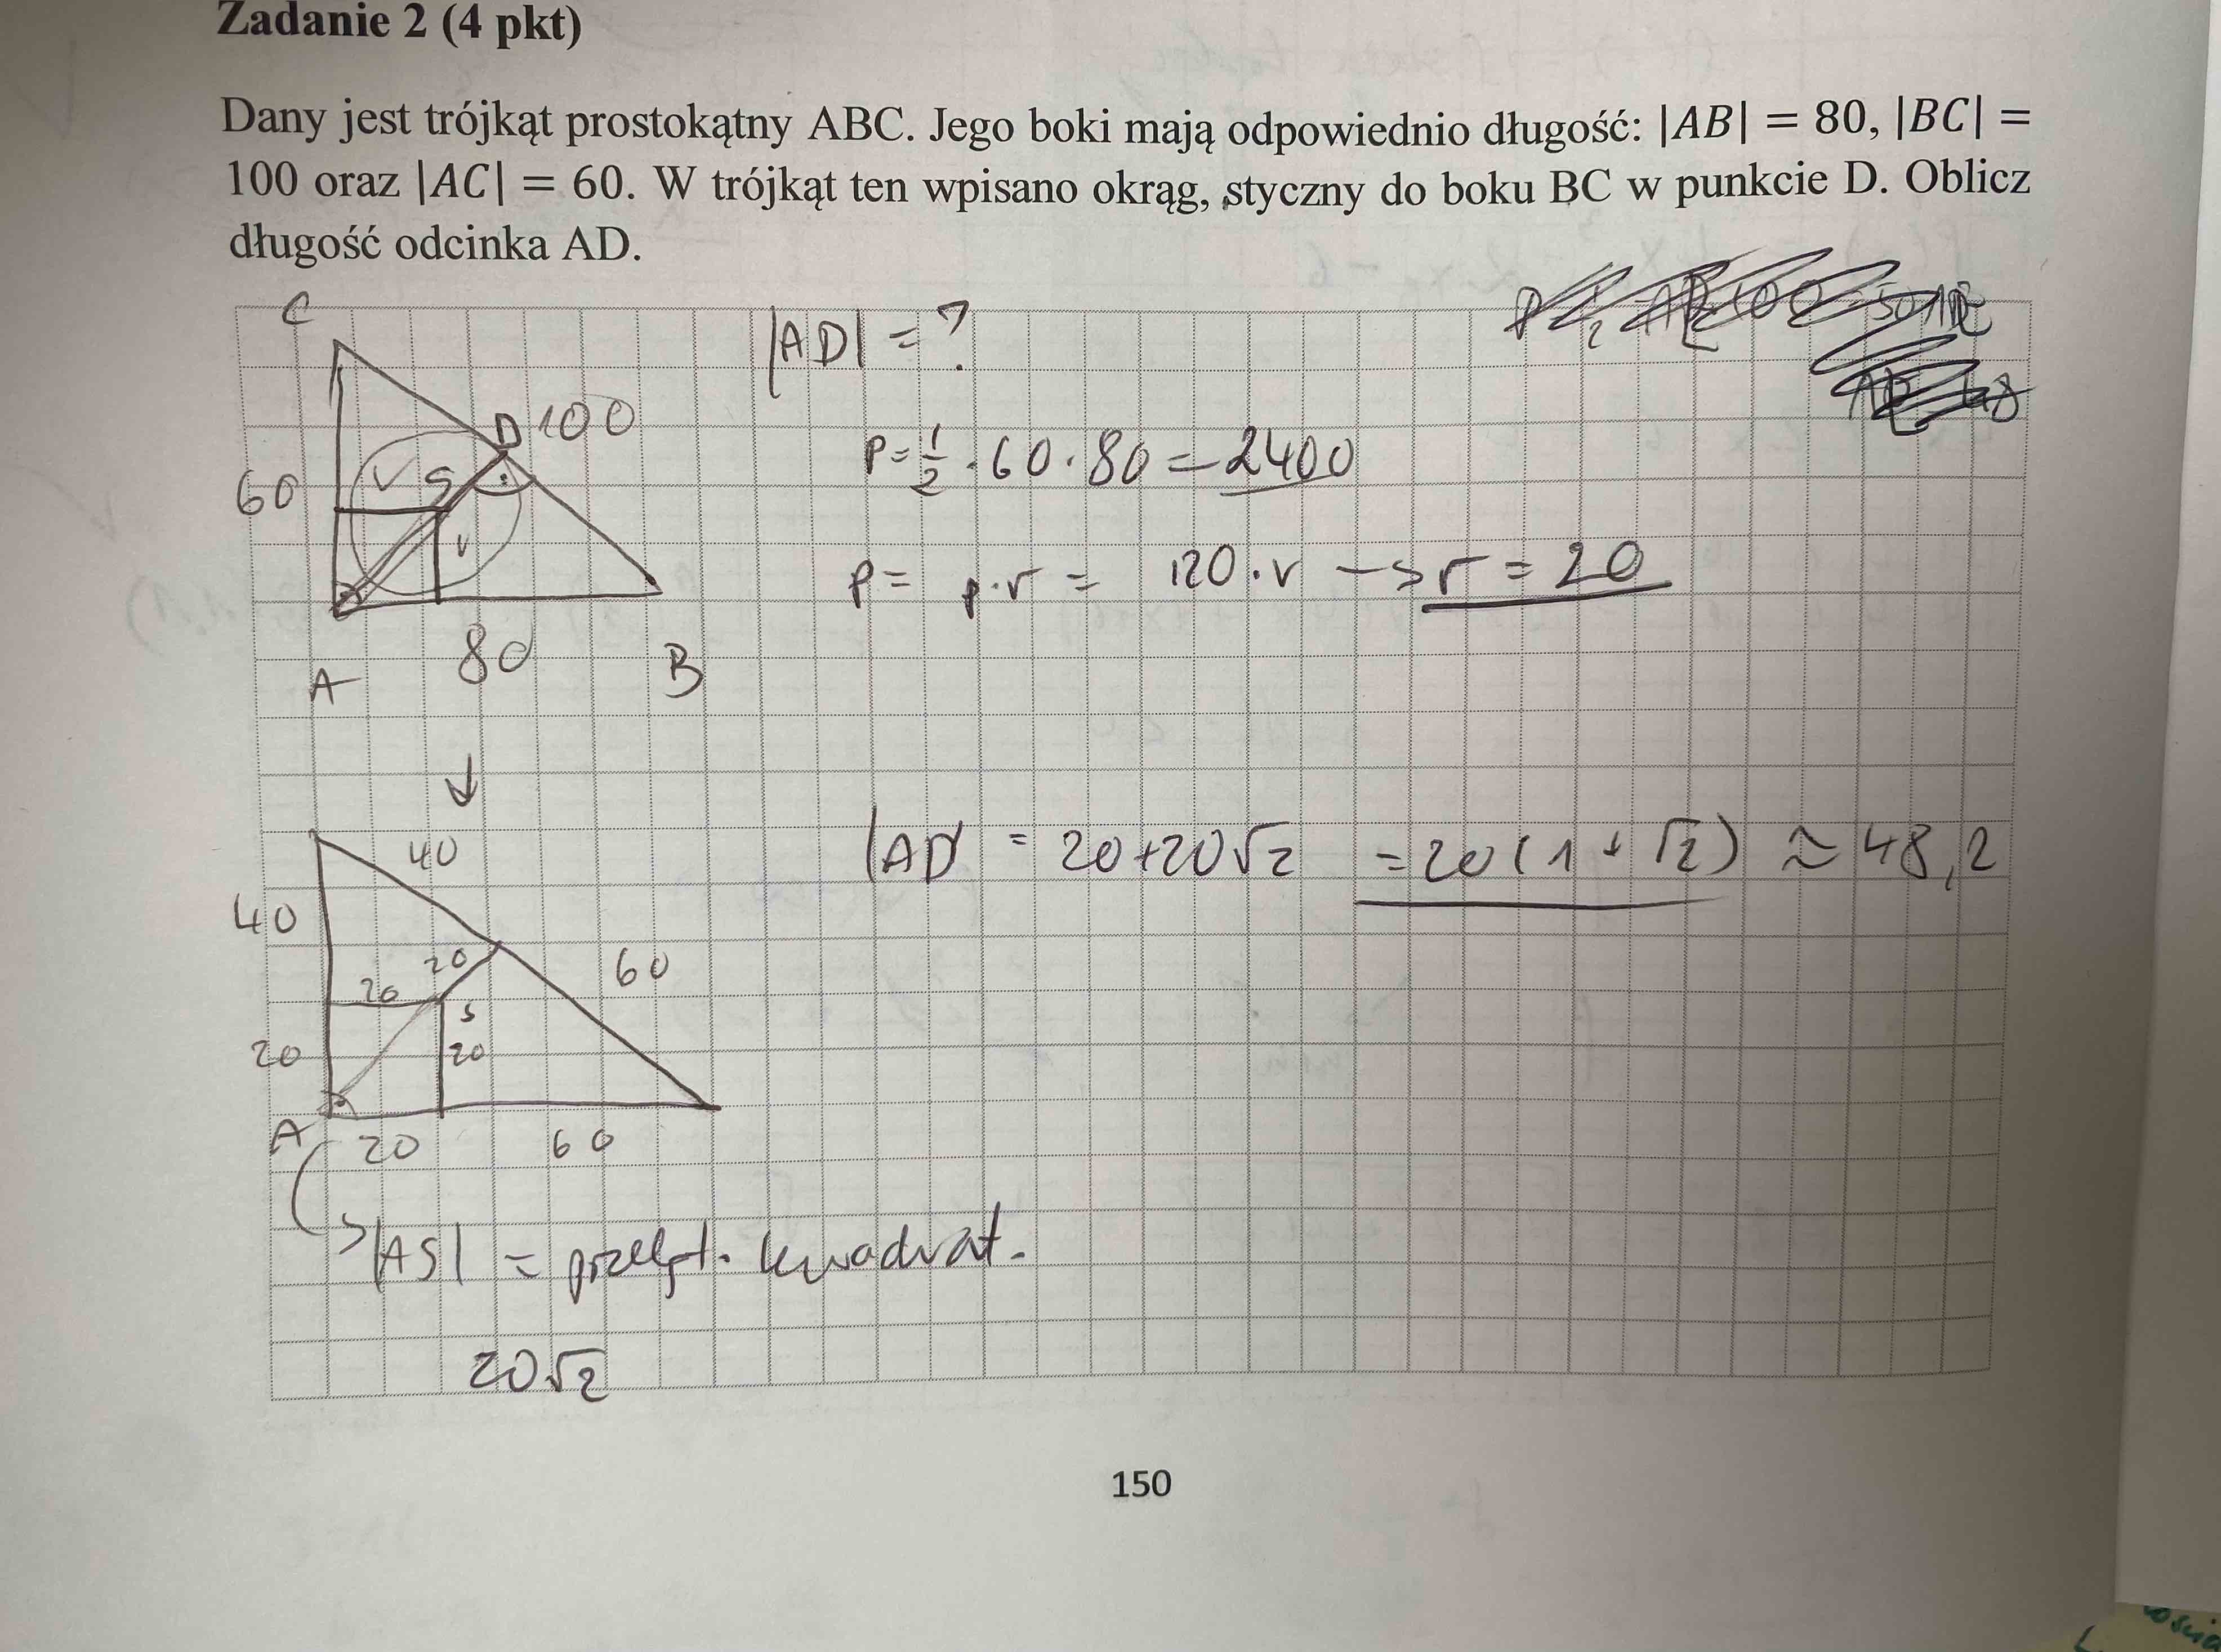 Zadanie 2 (4 pkt)
Dany jest trójkąt prostokątny ABC. Jego boki mają odpowiednio długość: |AB| = 80, |BC| =
100 oraz |AC| = 60. W trójkąt ten wpisano okrąg, styczny do boku BC w punkcie D. Oblicz
długość odcinka AD.
C
|AD| = ?
D 100
60
r S
r
P = 1/2 · 60 · 80 = 2400
P = p·r = 120·r → r = 20
80
A B
↓
|AD| = 20+20√2 = 20(1+√2) ≈ 48,2
40
40
20
60
20
S
20
20
A 20 60
→ |AS| = przekąt. kwadrat.
20√2
150